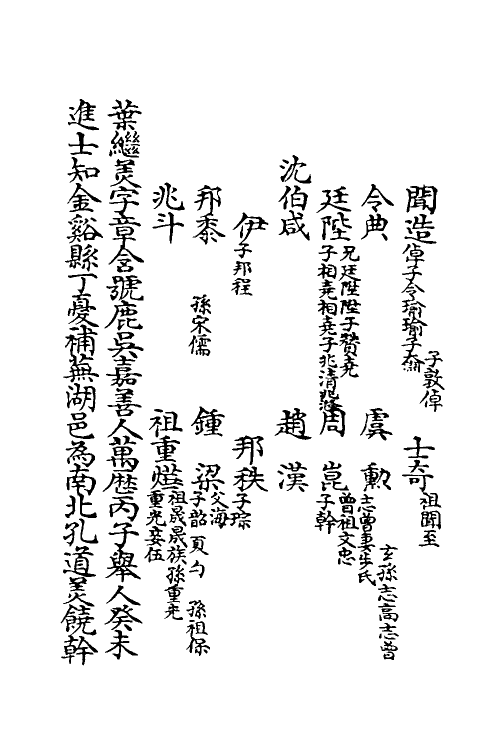 聞造倬子令瑜瑜子奫子敦倬　士奇祖聞至
令典兄廷陛陛子贊堯　虞勲志曾妻步氏玄孫志高志曾
廷陛子相堯相堯子兆清　周崑曾祖文忠子幹
沈伯咸　趙漢
伊子邦程　邦秩子琮
邦黍孫宋儒　鍾梁父海子韶夏勺孫祖保
兆斗　祖重祖晟晟族孫重光重光妾伍
葉繼美字章含號鹿吳嘉善人萬歷丙子舉人癸未
進士知金谿縣丁憂補蕪湖邑為南北孔道美饒幹